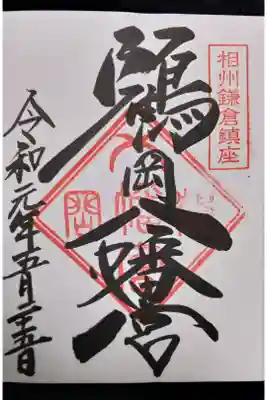 相州鎌倉鎮座
鶴岡八幡宮
令和元年五月